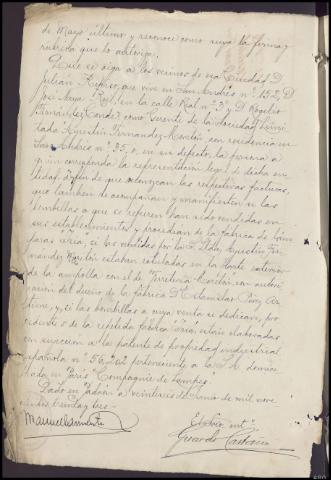 de Mayo último y reconoce como suya la firma y
rúbrica que lo autoriza.
Que se oiga a los vecinos de esa Ciudad D.
Julián, que vive en San Andrés nº 152, D.
José Rey, en la calle Real nº 3 y D. Rogelio
Fernández Conde, como Gerente de la Sociedad Limi-
tada Agustín Fernandez-Moretón, con residencia en
San Andrés nº 35, o, en su defecto, la persona a
quien corresponda la representación legal de dicha en-
tidad a fin de que reconozcan las respectivas facturas,
que también se acompañan y manifiesten si las
bombillas a que se refieren han sido vendidas en
sus establecimientos y procedían de la fábrica de lám-
paras "Iria"; si las vendidas por la S. Ltda. Agustín Fer-
nandez Moretón estaban rotuladas en la parte exterior
de la ampolla con el de "Ferretería Moretón", con autori-
zación del dueño de la fábrica D. Estanislao Pérez Ar-
time, y, si las bombillas a cuya venta se dedican, pro-
cedentes de la repetida fábrica "Iria" están elaboradas
con sujeción a la patente de propiedad industrial
española nº 56.262 perteneciente a la S.A. domici-
liada en París "Compagnie de Lampes".
Dado en Padrón a veintiseis de Junio de mil nove
cientos treinta y tres.
Manuel
El Srio. intº
Gerardo